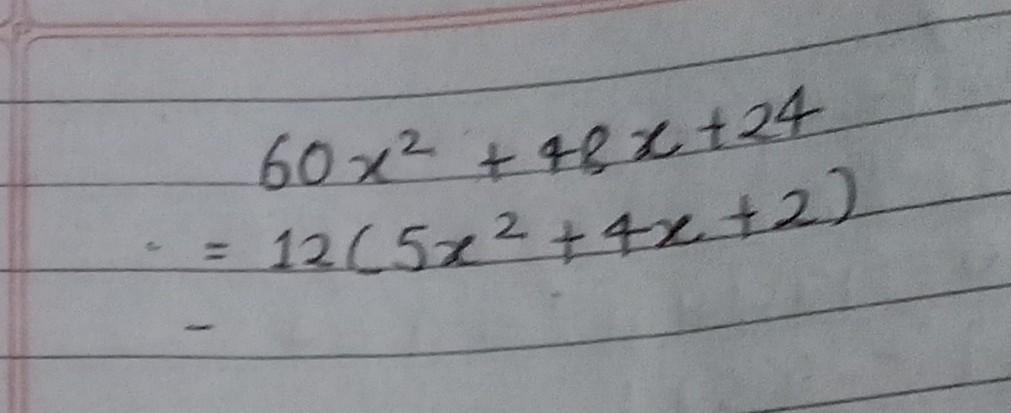 60x² + 48x + 24
= 12(5x² + 4x + 2)
-